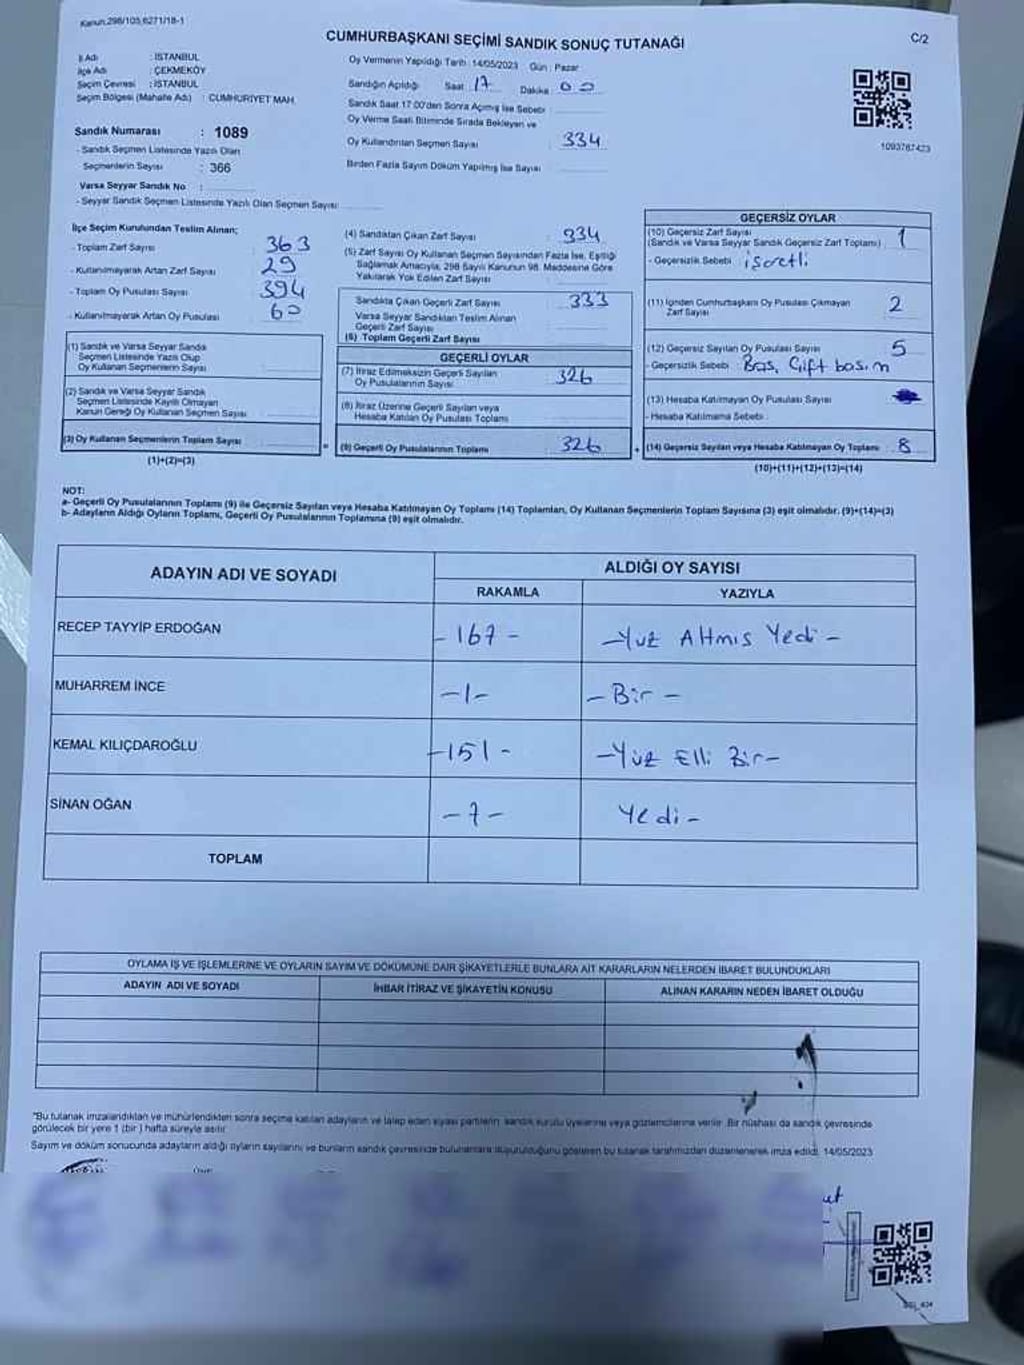 Kanun.298/105,6271/18-1
CUMHURBAŞKANI SEÇİMİ SANDIK SONUÇ TUTANAĞI
C/2
İl Adı : İSTANBUL
İlçe Adı : ÇEKMEKÖY
Seçim Çevresi : İSTANBUL
Seçim Bölgesi (Mahalle Adı) : CUMHURİYET MAH.
Sandık Numarası : 1089
- Sandık Seçmen Listesinde Yazılı Olan
Seçmenlerin Sayısı : 366
Varsa Seyyar Sandık No :
- Seyyar Sandık Seçmen Listesinde Yazılı Olan Seçmen Sayısı:
Oy Vermenin Yapıldığı Tarih :14/05/2023 Gün : Pazar
Sandığın Açıldığı Saat : 17 Dakika : 00
Sandık Saat 17:00'den Sonra Açımış İse Sebebi :
Oy Verme Saati Bitiminde Sırada Bekleyen ve
Oy Kullandırılan Seçmen Sayısı : 334
Birden Fazla Sayım Döküm Yapılmış İse Sayısı :
1093787423
İlçe Seçim Kurulundan Teslim Alınan;
- Toplam Zarf Sayısı : 363
- Kullanılmayarak Artan Zarf Sayısı : 29
- Toplam Oy Pusulası Sayısı : 394
- Kullanılmayarak Artan Oy Pusulası : 60
(1) Sandık ve Varsa Seyyar Sandık
Seçmen Listesinde Yazılı Olup
Oy Kullanan Seçmenlerin Sayısı :
(2) Sandık ve Varsa Seyyar Sandık
Seçmen Listesinde Kayıtlı Olmayan
Kanun Gereği Oy Kullanan Seçmen Sayısı :
(3) Oy Kullanan Seçmenlerin Toplam Sayısı :
(1)+(2)=(3)
(4) Sandıktan Çıkan Zarf Sayısı : 334
(5) Zarf Sayısı Oy Kullanan Seçmen Sayısından Fazla İse, Eşitliği
Sağlamak Amacıyla, 298 Sayılı Kanunun 98. Maddesine Göre
Yakılarak Yok Edilen Zarf Sayısı :
Sandıkta Çıkan Geçerli Zarf Sayısı : 333
Varsa Seyyar Sandıktan Teslim Alınan
Geçerli Zarf Sayısı :
(6) Toplam Geçerli Zarf Sayısı :
GEÇERLİ OYLAR
(7) İtiraz Edilmeksizin Geçerli Sayılan
Oy Pusulalarının Sayısı : 326
(8) İtiraz Üzerine Geçerli Sayılan veya
Hesaba Katılan Oy Pusulası Toplamı :
= (9) Geçerli Oy Pusulalarının Toplamı : 326
GEÇERSİZ OYLAR
(10) Geçersiz Zarf Sayısı
(Sandık ve Varsa Seyyar Sandık Geçersiz Zarf Toplamı) : 1
- Geçersizlik Sebebi : işaretli
(11) İçinden Cumhurbaşkanı Oy Pusulası Çıkmayan
Zarf Sayısı : 2
(12) Geçersiz Sayılan Oy Pusulası Sayısı : 5
- Geçersizlik Sebebi : Boş, Çift basım
(13) Hesaba Katılmayan Oy Pusulası Sayısı :
- Hesaba Katılmama Sebebi :
+ (14) Geçersiz Sayılan veya Hesaba Katılmayan Oy Toplamı : 8
(10)+(11)+(12)+(13)=(14)
NOT:
a- Geçerli Oy Pusulalarının Toplamı (9) ile Geçersiz Sayılan veya Hesaba Katılmayan Oy Toplamı (14) Toplamları, Oy Kullanan Seçmenlerin Toplam Sayısına (3) eşit olmalıdır. (9)+(14)=(3)
b- Adayların Aldığı Oyların Toplamı, Geçerli Oy Pusulalarının Toplamına (9) eşit olmalıdır.
ADAYIN ADI VE SOYADI
ALDIĞI OY SAYISI
RAKAMLA YAZIYLA
RECEP TAYYİP ERDOĞAN -167- -Yüz Altmış Yedi-
MUHARREM İNCE -1- -Bir-
KEMAL KILIÇDAROĞLU -151- -Yüz Elli Bir-
SİNAN OĞAN -7- Yedi-
TOPLAM
OYLAMA İŞ VE İŞLEMLERİNE VE OYLARIN SAYIM VE DÖKÜMÜNE DAİR ŞİKAYETLERLE BUNLARA AİT KARARLARIN NELERDEN İBARET BULUNDUKLARI
ADAYIN ADI VE SOYADI İHBAR İTİRAZ VE ŞİKAYETİN KONUSU ALINAN KARARIN NEDEN İBARET OLDUĞU
"Bu tutanak imzalandıktan ve mühürlendikten sonra seçime katılan adayların ve talep eden siyasi partilerin sandık kurulu üyelerine veya gözlemcilerine verilir. Bir nüshası da sandık çevresinde
görülecek bir yere 1 (bir ) hafta süreyle asılır.
Sayım ve döküm sonucunda adayların aldığı oyların sayılarını ve bunların sandık çevresinde bulunanlara duyurulduğunu gösteren bu tutanak tarafımızdan düzenlenerek imza edildi. 14/05/2023